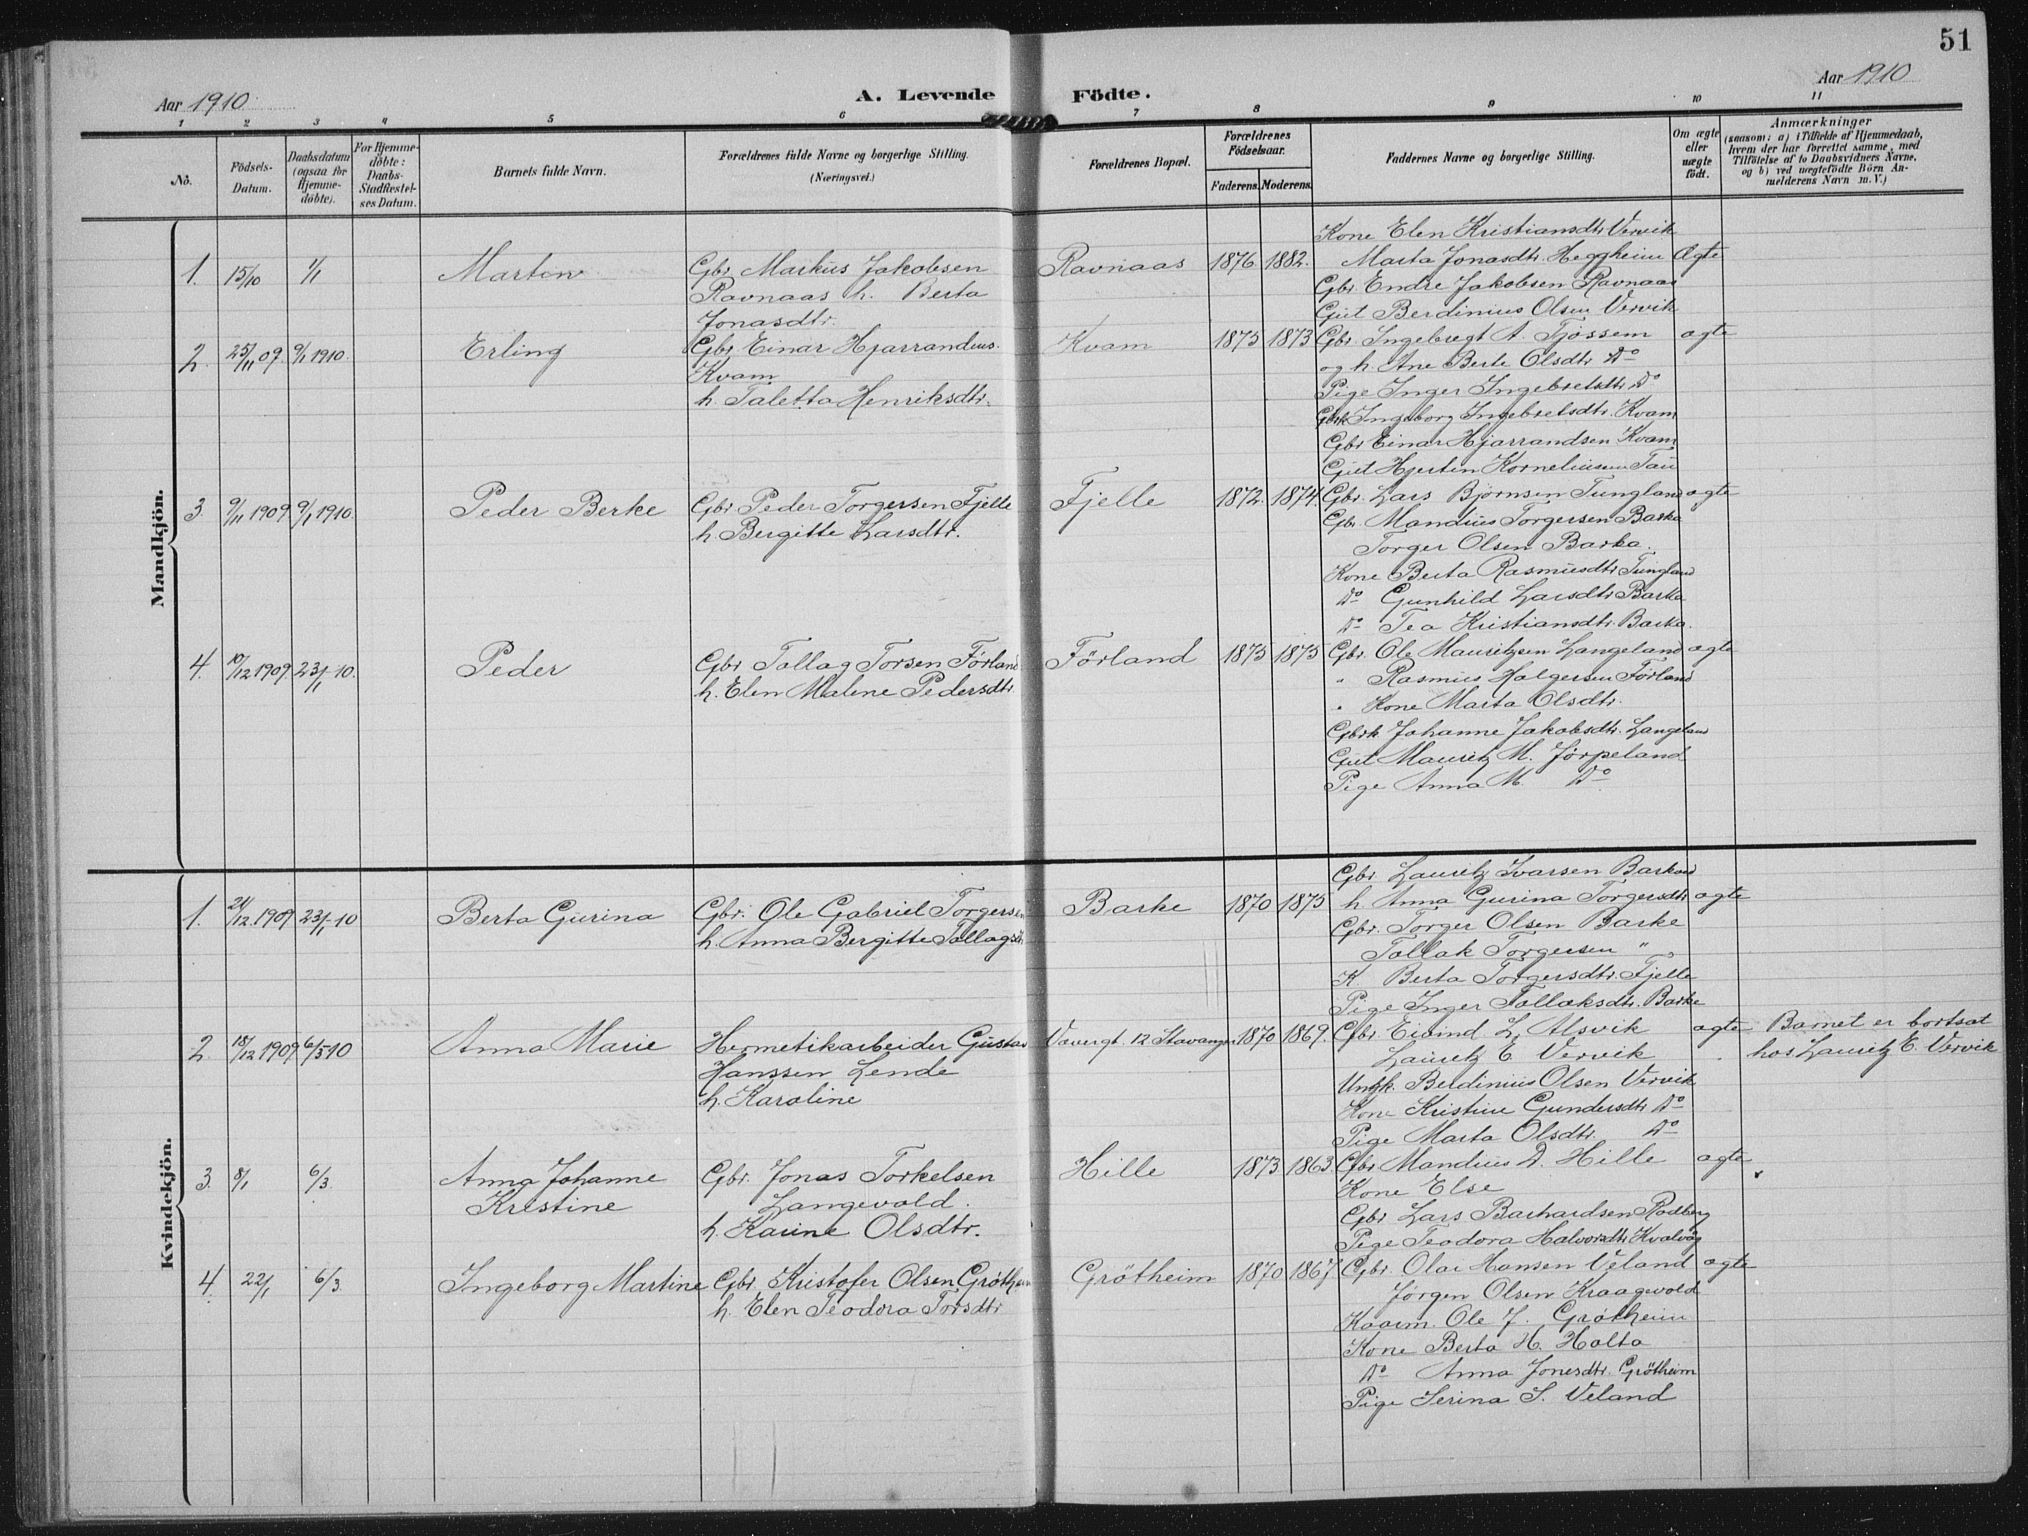 51
Aar 1910
A. Levende Födte.
Aar 1910
1 2 3 4 5 6 7 8 9 10 11
No.
Födsels-Datum.
Daabsdatum (ogsaa for Hjemme-döbte).
For Hjemme-döbte: Daabs-Stadfæstel-ses Datum.
Barnets fulde Navn.
Forældrenes fulde Navne og borgerlige Stilling.
(Næringsvei.)
Forældrenes Bopæl.
Forældrenes Födselsaar.
Faderens. Moderens.
Faddernes Navne og borgerlige Stilling.
Om ægte eller uægte födt.
Anmærkninger
(saasom: a) i Tilfælde af Hjemmedaab, hvem der har forrettet samme, med Tilföielse af to Daabsvidners Navne, og b) ved uægtefödte Börn An-melderens Navn m. V.)
Mandkjön.
1. 15/10 1/1 Marton Gbr. Markus Jakobsen Ravnaas 1876 1882.
Ravnaas h. Berta
Jonasdtr.
Kone Elen Kristiansdtr. Vervik
Marta Jonasdtr. Heggheim Ægte
Gbr. Endre Jakobsen Ravnaas
Gut Berdinius Olsen Vervik
2. 25/11 09. 9/1 1910. Erling Gbr. Einar Hjarrandsen Kvam 1875 1873
Kvam
h. Taletta Henriksdtr.
Gbr. Ingebregt A. Tjössem ægte
og h. Ane Berte Olsdtr. Do
Pige Inger Ingebretsdtr. Do
Gbrk. Ingeborg Ingebretsdtr. Kvam
Gbr. Einar Hjarrandsen Kvam
Gut Hjertin Korneliussen Tau
3. 9/11 1909 9/1 1910. Peder Berke Gbr. Peder Torgersen Fjelle Fjelle 1872. 1874.
h. Bergitte Larsdtr.
Gbr. Lars Bjørnsen Tungland ægte
Gbr. Mandius Torgersen Barka
Torger Olsen Barka.
Kone Berta Rasmusdtr. Tungland
Do Gunhild Larsdtr. Barka
Do Tea Kristiansdtr. Barka.
4. 10/12 1909. 23/1 10. Peder Gbr. Tallag Torsen Förland Förland 1875 1875
h. Elen Malene Pedersdtr.
Gbr. Ole Mauritzsen Langeland ægte
" Rasmus Holgersen Förland
" Kone Marta Olsdtr.
Gbrk Johanne Jakobsdtr. Langeland
Gut Mauritz M. Jørpeland
Pige Anna M. Do
Kvindekjön.
1. 21/12 1909 23/1 10 Berta Gurina Gbr. Ole Gabriel Torgersen Barke 1870 1875
h. Anna Bergitte Tallagsdtr
Gbr. Lauritz Ivarsen
h. Anna Gurina Torgersdtr. ægte
Gbr. Torger Olsen Barke
Tallak Torgersen "
K Berta Torgersdtr. Fjelle
Pige Inger Tallaksdtr. Barke
2. 18/12 1909 6/3 10 Anna Marie Hermetikarbeider Gustav Vævergt. 12 Stavanger 1870 1869.
Hanssen Lende
h. Karoline
Gbr. Eivind L. Alsvik ægte Barnet er bortsat
Lauritz E. Vervik hos Lauritz E. Vervik
Ungk. Berdinius Olsen Vervik
Kone Kristine Gundersdtr. Do
Pige Marta Olsdtr. Do
3. 8/1 6/3. Anna Johanne Gbr. Jonas Torkelsen Hille 1873 1863.
Kristine Langevold.
h. Karine Olsdtr.
Gbr. Mandius D. Hille ægte
Kone Else
Gbr. Lars Barhardsen Rødberg
Pige Teodora Halvorsdtr. Kvalvåg
4. 22/1 6/3. Ingeborg Martine Gbr. Kristofer Olsen Grötheim Grötheim 1870 1867
h. Elen Teodora Torsdtr
Gbr. Olai Hansen Veland ægte
Jörgen Olsen Kraagevold
Kaarm. Ole J. Grötheim
Kone Berta H. Holta
Do Anna Jonesdtr. Grötheim
Pige Serina S. Veland